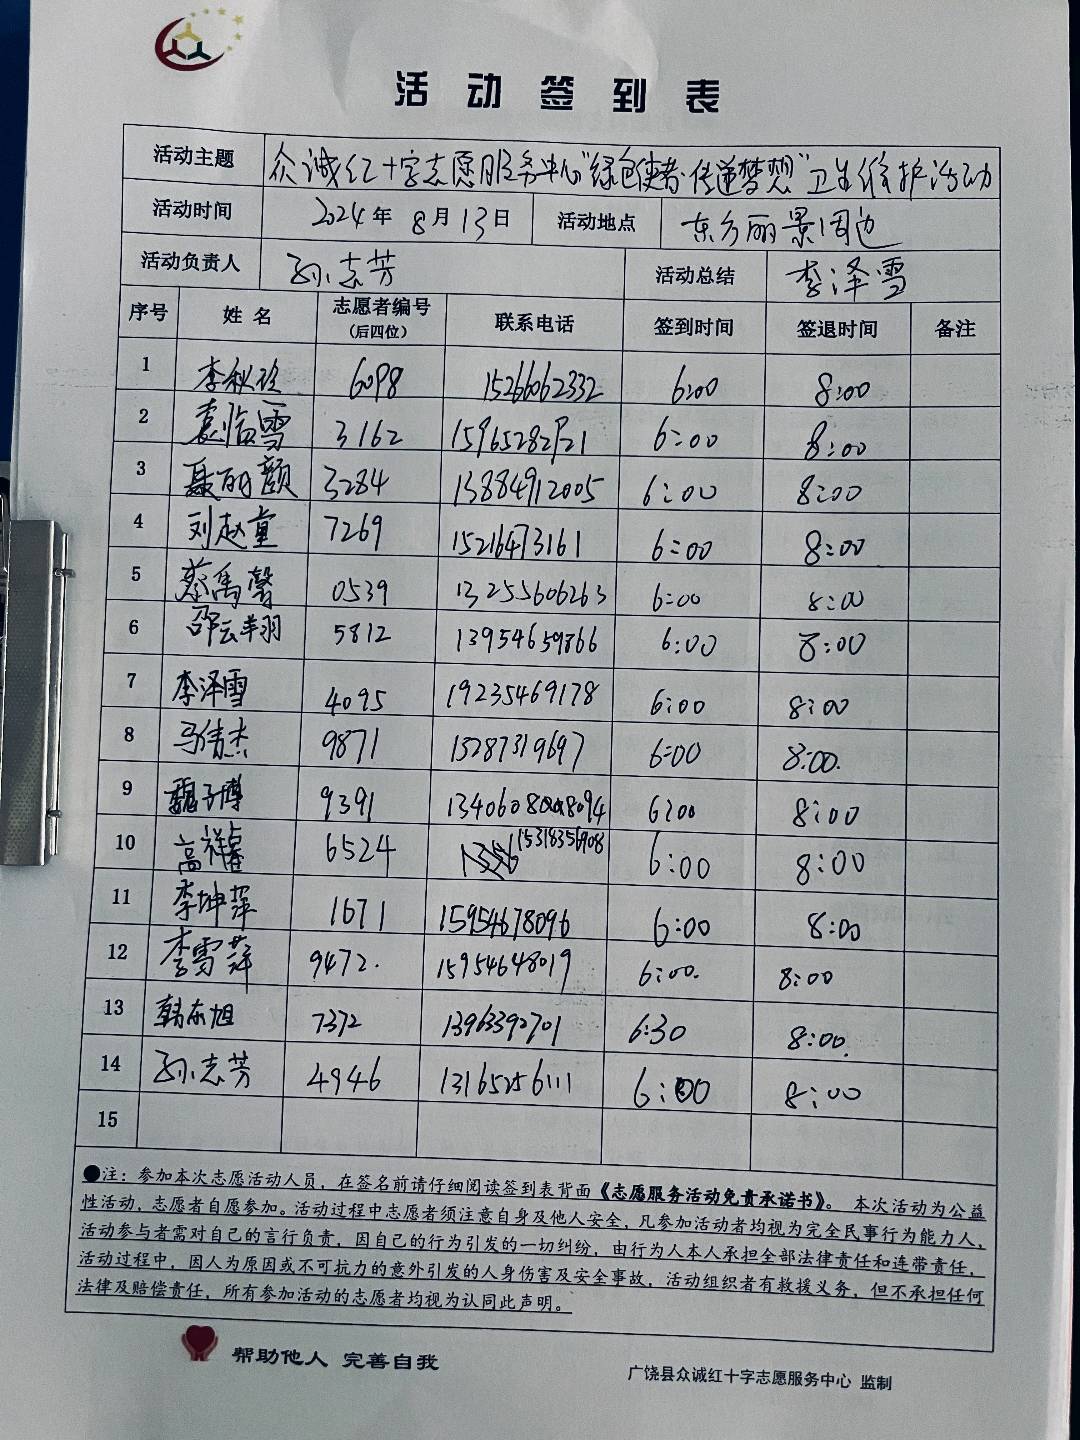 活动签到表
活动主题 众诚红十字志愿服务中心"绿色使者·传递梦想"卫生维护活动
活动时间 2024年8月13日 活动地点 东方丽景周边
活动负责人 孙志芳 活动总结 李泽雪
序号 姓名 志愿者编号(后四位) 联系电话 签到时间 签退时间 备注
1 李秋玲 6098 15266062332 6:00 8:00
2 袁临雪 3162 6:00 8:00
3 聂丽颜 3284 13884912005 6:00 8:00
4 刘赵童 7269 15216473161 6:00 8:00
5 蔡禹馨 0539 13255606263 6:00 8:00
6 邵云翔 5812 13954659866 6:00 8:00
7 李泽雪 4095 19235469178 6:00 8:00
8 马倩杰 9871 13287319697 6:00 8:00.
9 魏子博 9391 6:00 8:00
10 高祥 6524 15318356908 6:00 8:00
11 李坤萍 1671 15954678096 6:00 8:00
12 李雪萍 9472. 15954648019 6:00. 8:00
13 韩东旭 7372 13963392701 6:30 8:00.
14 孙志芳 4946 13165256111 6:00 8:00
15
●注：参加本次志愿活动人员，在签名前请仔细阅读签到表背面《志愿服务活动免责承诺书》。本次活动为公益
性活动，志愿者自愿参加。活动过程中志愿者须注意自身及他人安全，凡参加活动者均视为完全民事行为能力人，
活动参与者需对自己的言行负责，因自己的行为引发的一切纠纷，由行为人本人承担全部法律责任和连带责任，
活动过程中，因人为原因或不可抗力的意外引发的人身伤害及安全事故，活动组织者有救援义务，但不承担任何
法律及赔偿责任，所有参加活动的志愿者均视为认同此声明。
帮助他人 完善自我
广饶县众诚红十字志愿服务中心 监制